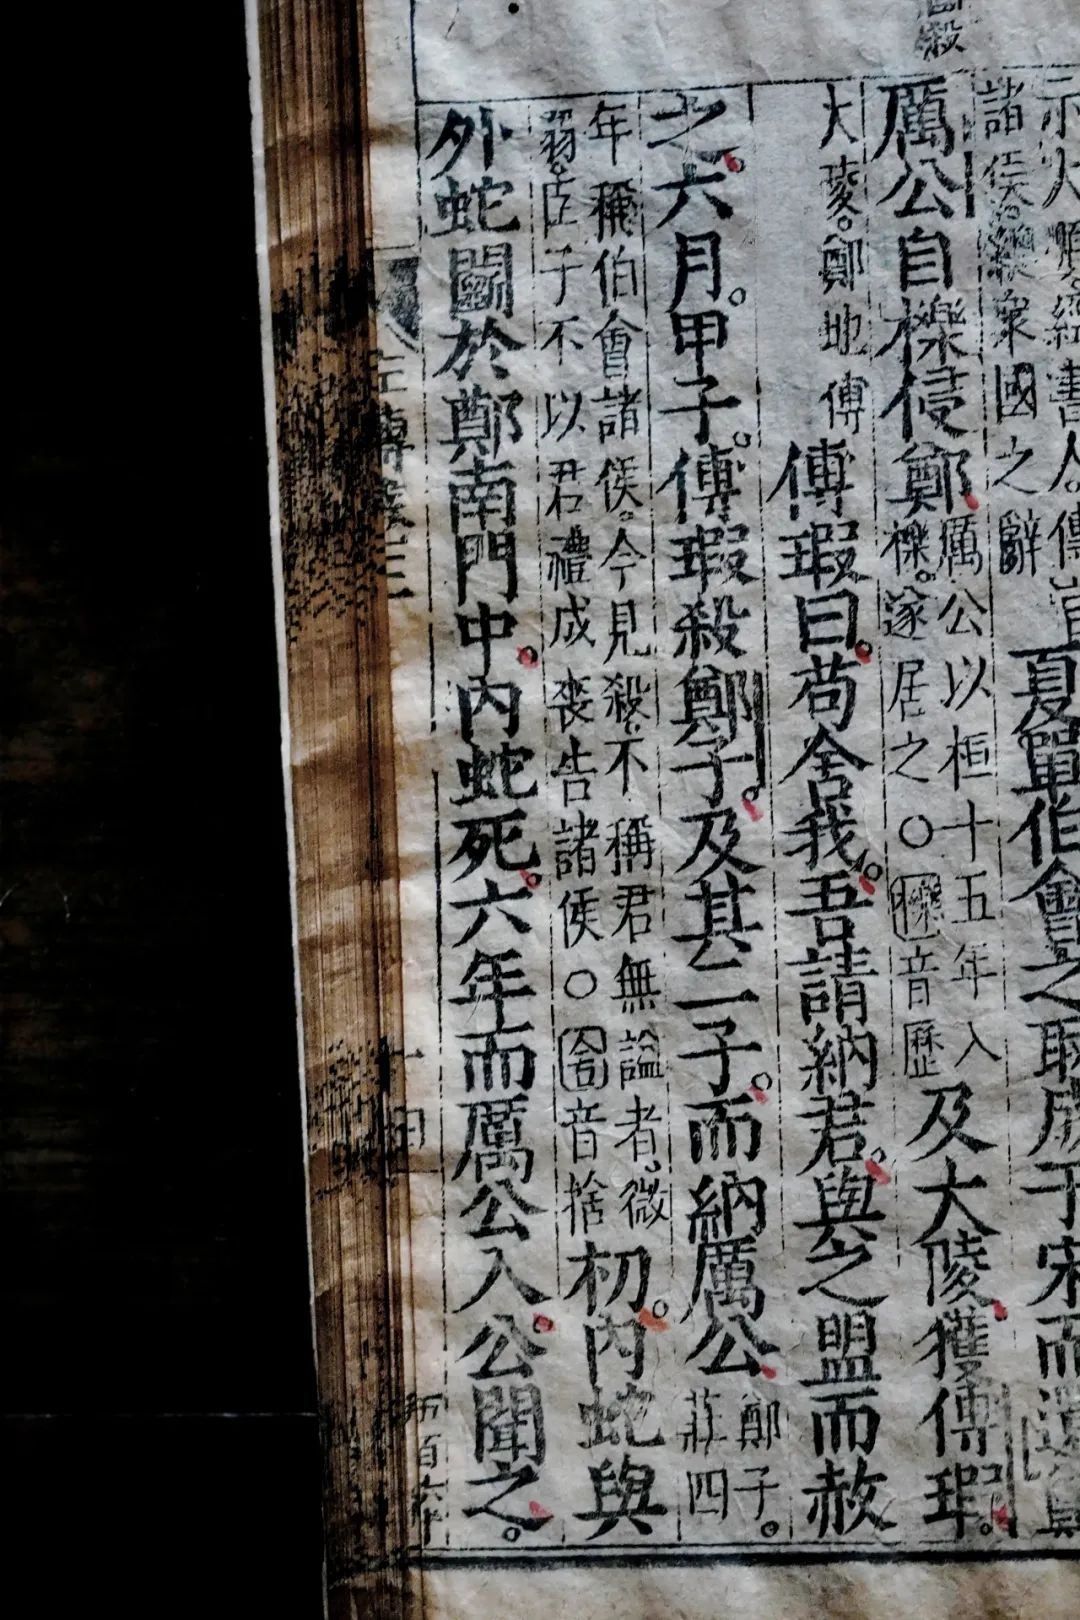 示大順。經書人。傳
諸侯。總衆國之辭
夏單伯會之取成于宋而還
厲公自櫟侵鄭。
厲公以桓十五年入
櫟。遂居之○櫟音歷
及大陵。獲傅瑕。
大陵。鄭地傅
傅瑕曰。苟舍我。吾請納君。與之盟而赦
之。六月。甲子。傅瑕殺鄭子。及其二子。而納厲公。
鄭子。
莊四
年稱伯會諸侯。今見殺。不稱君無謚者。微
弱。臣子不以君禮成喪告諸侯○舍音捨
初。內蛇與
外蛇鬭於鄭南門中。內蛇死。六年而厲公入。公聞之。
左傳卷三